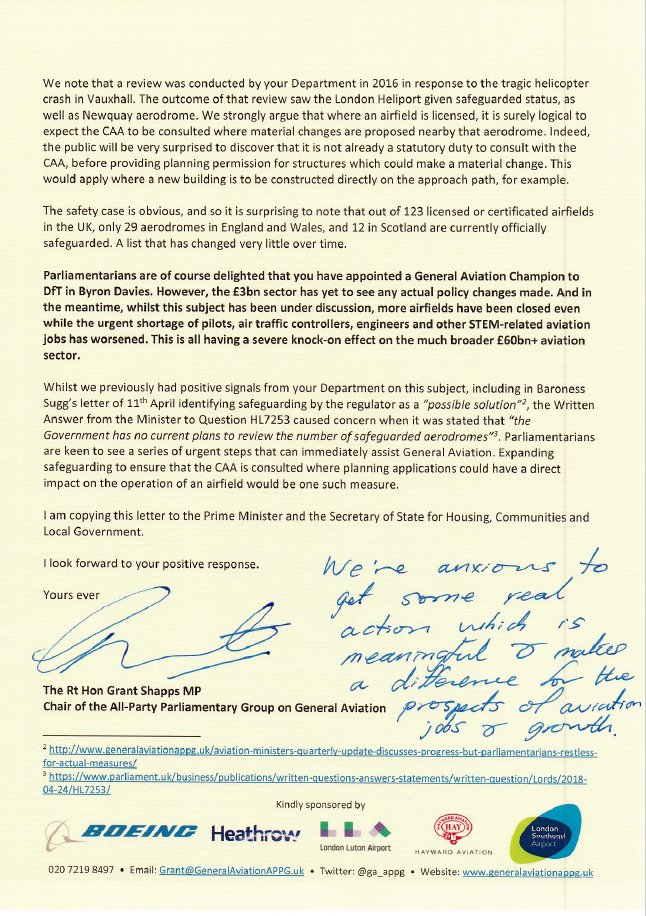 We note that a review was conducted by your Department in 2016 in response to the tragic helicopter
crash in Vauxhall. The outcome of that review saw the London Heliport given safeguarded status, as
well as Newquay aerodrome. We strongly argue that where an airfield is licensed, it is surely logical to
expect the CAA to be consulted where material changes are proposed nearby that aerodrome. Indeed,
the public will be very surprised to discover that it is not already a statutory duty to consult with the
CAA, before providing planning permission for structures which could make a material change. This
would apply where a new building is to be constructed directly on the approach path, for example.
The safety case is obvious, and so it is surprising to note that out of 123 licensed or certificated airfields
in the UK, only 29 aerodromes in England and Wales, and 12 in Scotland are currently officially
safeguarded. A list that has changed very little over time.
Parliamentarians are of course delighted that you have appointed a General Aviation Champion to
DfT in Byron Davies. However, the £3bn sector has yet to see any actual policy changes made. And in
the meantime, whilst this subject has been under discussion, more airfields have been closed even
while the urgent shortage of pilots, air traffic controllers, engineers and other STEM-related aviation
jobs has worsened. This is all having a severe knock-on effect on the much broader £60bn+ aviation
sector.
Whilst we previously had positive signals from your Department on this subject, including in Baroness
Sugg's letter of 11th April identifying safeguarding by the regulator as a "possible solution"2, the Written
Answer from the Minister to Question HL7253 caused concern when it was stated that "the
Government has no current plans to review the number of safeguarded aerodromes"3. Parliamentarians
are keen to see a series of urgent steps that can immediately assist General Aviation. Expanding
safeguarding to ensure that the CAA is consulted where planning applications could have a direct
impact on the operation of an airfield would be one such measure.
I am copying this letter to the Prime Minister and the Secretary of State for Housing, Communities and
Local Government.
I look forward to your positive response.
Yours ever
We're anxious to
get some real
action which is
meaningful & makes
a difference for the
prospects of aviation
jobs & growth.
The Rt Hon Grant Shapps MP
Chair of the All-Party Parliamentary Group on General Aviation
2 http://www.generalaviationappg.uk/aviation-ministers-quarterly-update-discusses-progress-but-parliamentarians-restless-
for-actual-measures/
3 https://www.parliament.uk/business/publications/written-questions-answers-statements/written-question/Lords/2018-
04-24/HL7253/
Kindly sponsored by
BOEING
Heathrow
London Luton Airport
HAY
HAYWARD AVIATION
London
Southend
Airport
020 7219 8497 • Email: Grant@GeneralAviationAPPG.uk • Twitter: @ga_appg • Website: www.generalaviationappg.uk